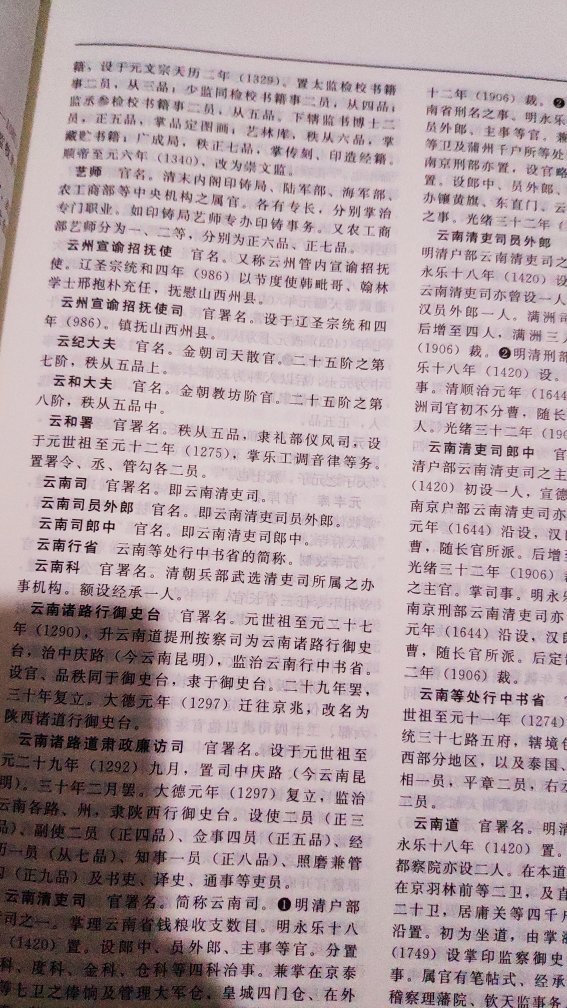 籍，设于元文宗天历二年（1329）。置太监检校书籍
事二员，从三品；少监同检校书籍事二员，从四品；
监丞参检校书籍事二员，从五品。下辖监书博士二
员，正五品，掌品定图画；艺林库，秩从六品，掌
藏贮书籍；广成局，秩正七品，掌传刻、印造经籍。
顺帝至元六年（1340），改为崇文监。
艺师 官名。清末内阁印铸局、陆军部、海军部、
农工商部等中央机构之属官。各有专长，分别掌治
专门职业。如印铸局艺师专办印铸事务。又农工商
部艺师分为一、二等，分别为正六品、正七品。
云州宣谕招抚使 官名。又称云州管内宣谕招抚
使。辽圣宗统和四年（986）以节度使韩毗哥、翰林
学士邢抱朴充任，抚慰山西州县。
云州宣谕招抚使司 官署名。设于辽圣宗统和四
年（986）。镇抚山西州县。
云纪大夫 官名。金朝司天散官。二十五阶之第
七阶，秩从五品上。
云和大夫 官名。金朝教坊阶官。二十五阶之第
八阶，秩从五品中。
云和署 官署名。秩从五品，隶礼部仪凤司，设
于元世祖至元十二年（1275），掌乐工调音律等务。
置署令、丞、管勾各二员。
云南司 官署名。即云南清吏司。
云南司员外郎 官名。即云南清吏司员外郎。
云南司郎中 官名。即云南清吏司郎中。
云南行省 云南等处行中书省的简称。
云南科 官署名。清朝兵部武选清吏司所属之办
事机构。额设经承一人。
云南诸路行御史台 官署名。元世祖至元二十七
年（1290），升云南道提刑按察司为云南诸路行御史
台，治中庆路（今云南昆明），监治云南行中书省。
设官、品秩同于御史台，隶于御史台。二十九年罢，
三十年复立。大德元年（1297）迁往京兆，改名为
陕西诸道行御史台。
云南诸路道肃政廉访司 官署名。设于元世祖至
元二十九年（1292）九月，置司中庆路（今云南昆
明）。三十年二月罢。大德元年（1297）复立，监治
云南各路、州，隶陕西行御史台。设使二员（正三
品）、副使二员（正四品）、佥事四员（正五品）、经
历一员（从七品）、知事一员（正八品）、照磨兼管
勾（正九品）及书吏、译史、通事等吏员。
云南清吏司 官署名。简称云南司。❶明清户部
司之一。掌理云南省钱粮收支数目。明永乐十八
（1420）置。设郎中、员外郎、主事等官。分置
科、度科、金科、仓科等四科治事。兼掌在京泰
等七卫之俸饷及管理大军仓、皇城四门仓、在外
十二年（1906）裁。❷
南省刑名之事。明永乐
员外郎、主事等官。兼
等卫及蒲州千户所等处
南京刑部亦置，设官略
置。设郎中、员外郎、
办镶黄旗、东直门、云
之事。光绪三十二年（
云南清吏司员外郎
明清户部云南清吏司之
永乐十八年（1420）设
云南清吏司亦曾设一人
汉员外郎一人。满洲司
后增至四人，满洲三人
（1906）裁。❷明清刑部
乐十八年（1420）设。
事。清顺治元年（1644
洲司官初不分曹，随长
人。光绪三十二年（190
云南清吏司郎中 官
清户部云南清吏司之主
（1420）初设一人，宣德
南京户部云南清吏司亦
元年（1644）沿设，汉
曹，随长官所派。后增至
光绪三十二年（1906）
之主官。掌司事。明永乐
南京刑部云南清吏司亦
元年（1644）沿设，汉郎
曹，随长官所派。后定
二年（1906）裁。
云南等处行中书省
世祖至元十一年（1274）
统三十七路五府，辖境包
西部分地区，以及泰国、
相一员，平章二员，右左
二员。
云南道 官署名。明清
永乐十八年（1420）置。
都察院亦设二人。在本道
在京羽林前等二卫，及直
二十卫，居庸关等四千户
沿置。初为坐道，由掌
（1749）设掌印监察御史
事。属官有笔帖式、经承
稽察理藩院、钦天监事务